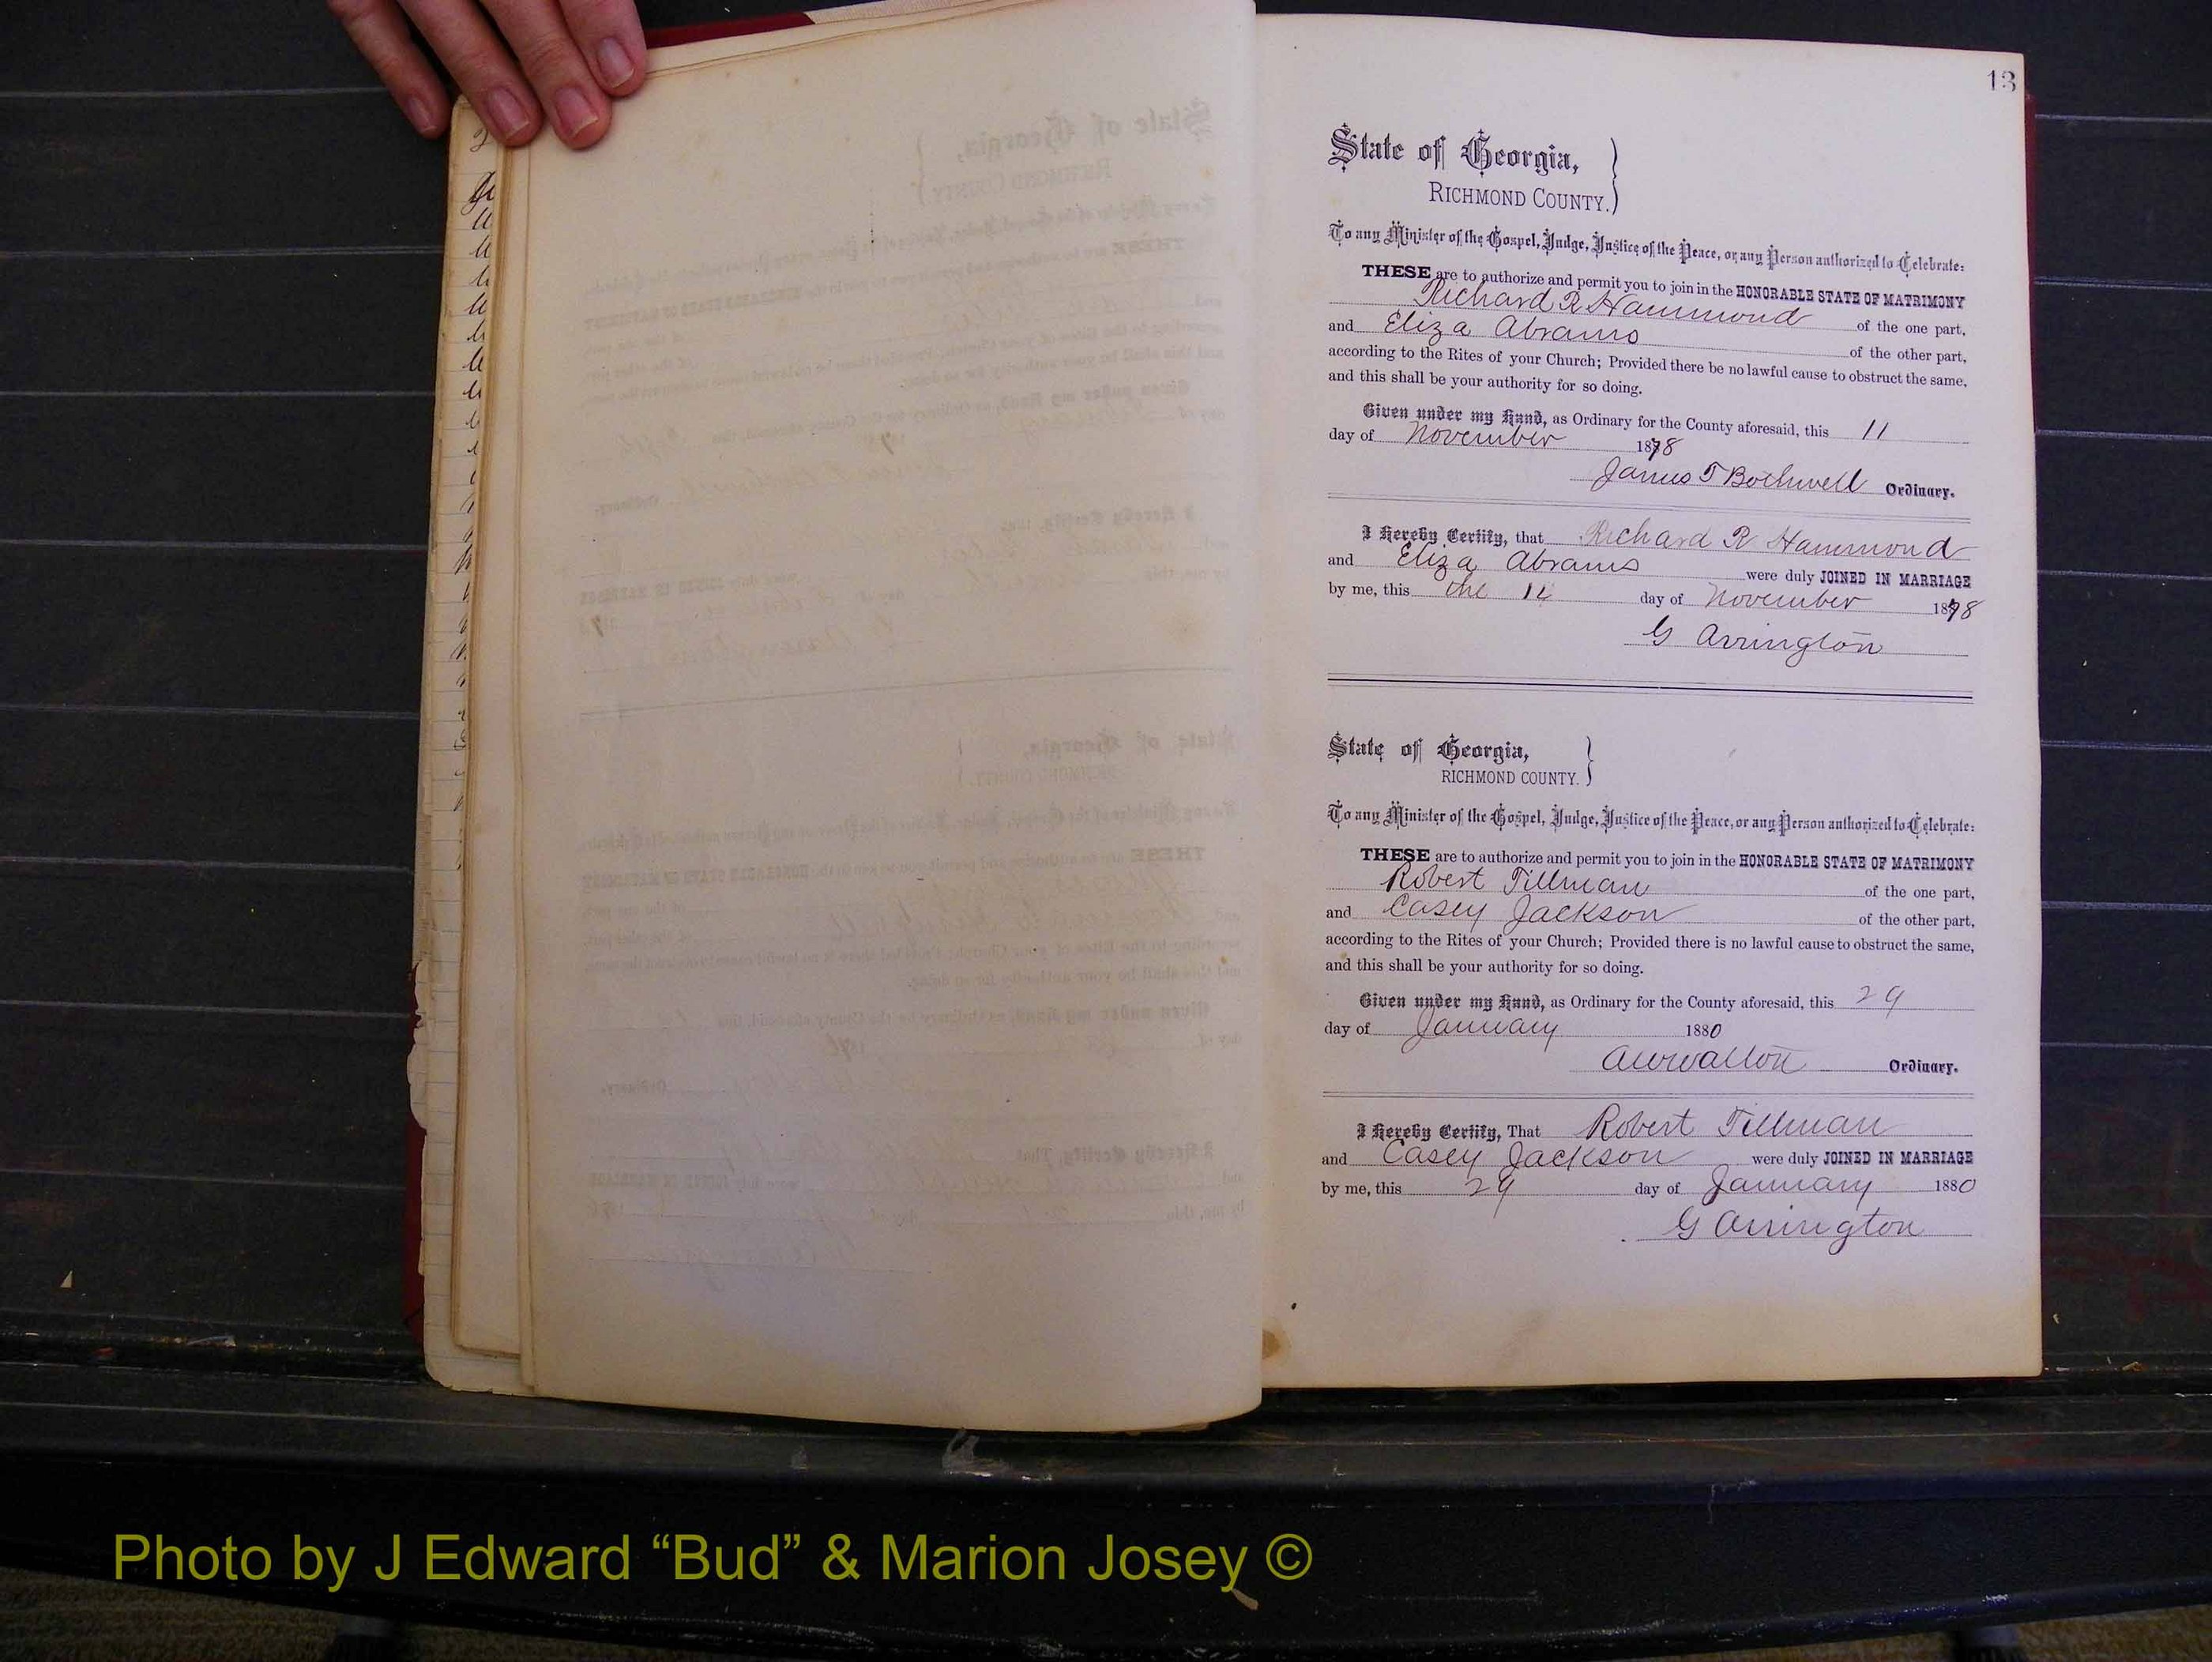 13
State of Georgia,
RICHMOND COUNTY.
To any Minister of the Gospel, Judge, Justice of the Peace, or any Person authorized to Celebrate:
THESE are to authorize and permit you to join in the HONORABLE STATE OF MATRIMONY
Richard R Hammond of the one part,
and Eliza Abrams of the other part,
according to the Rites of your Church; Provided there be no lawful cause to obstruct the same,
and this shall be your authority for so doing.
Given under my Hand, as Ordinary for the County aforesaid, this 11
day of November 1878
James T Bothwell Ordinary.
I Hereby Certify, that Richard R Hammond
and Eliza Abrams were duly JOINED IN MARRIAGE
by me, this the 11 day of November 1878
G Arrington
State of Georgia,
RICHMOND COUNTY.
To any Minister of the Gospel, Judge, Justice of the Peace, or any Person authorized to Celebrate:
THESE are to authorize and permit you to join in the HONORABLE STATE OF MATRIMONY
Robert Tillman of the one part,
and Casey Jackson of the other part,
according to the Rites of your Church; Provided there is no lawful cause to obstruct the same,
and this shall be your authority for so doing.
Given under my Hand, as Ordinary for the County aforesaid, this 29
day of January 1880
A W Walton Ordinary.
I Hereby Certify, That Robert Tillman
and Casey Jackson were duly JOINED IN MARRIAGE
by me, this 29 day of January 1880
G Arrington
Photo by J Edward “Bud” & Marion Josey ©